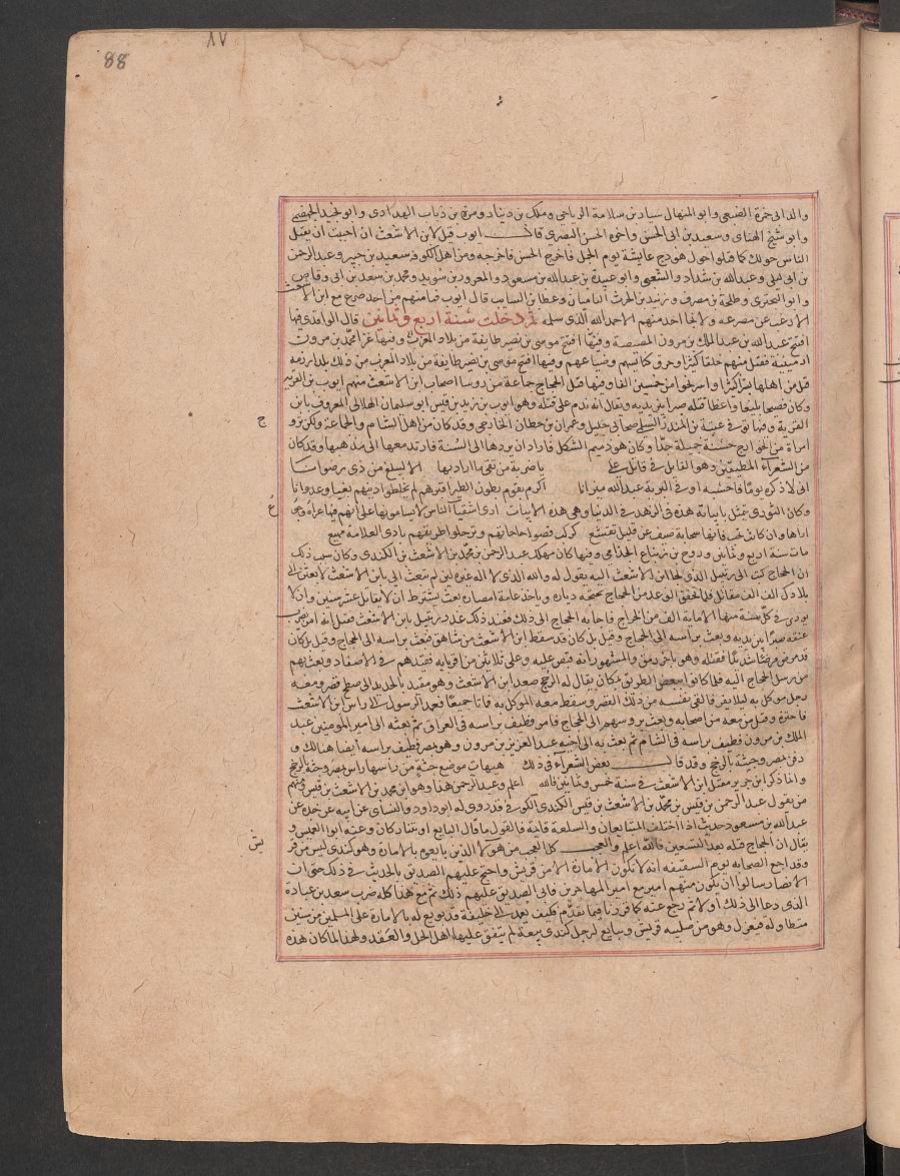 88
٨٧
والد ابي حمزة الضبعي وابو المنهال سيار بن سلامة الرياحي وملك بن دينار ومرة بن ذباب الهدادي وابو نجيد الجهضمي
وابو شيخ الهناي وسعيد بن ابي الحسن واخوه الحسن البصري قال ايوب قيل لابن الاشعث ان احببت ان يقتل
الناس حولك كما قتلوا حول هودج عايشة يوم الجمل فاخرج الحسن فاخرجه ومن اهل الكوفة سعيد بن جبير وعبد الرحمن
بن ابي ليلى وعبد الله بن شداد والشعبي وابو عبيدة بن عبد الله بن مسعود والمعرور بن سويد ومحمد بن سعد بن ابي وقاص
وابو البختري وطلحة بن مصرف وزبيد بن الحرث الياميان وعطا بن السايب قال ايوب فما منهم من احد صرع مع ابن الاشعث
الا رغب عن مصرعه ولا نجا احد منهم الا حمد الله الذي سلمه ثم دخلت سنة اربع وثمانين قال الواقدي فيها
افتتح عبد الله بن عبد الملك بن مرون المصيصة وفيها غزا محمد بن مرون
ارمينية فقتل منهم خلقا كثيرا وحرق كنايسهم وضياعهم وفيها افتتح موسى بن نصير طايفة من بلاد المغرب من ذلك بلد ارومة
قتل من اهلها بشرا كثيرا واسر نحوا من خمسين الفا وفيها قتل الحجاج جماعة من روسا اصحاب ابن الاشعث منهم ايوب بن القرية
وكان فصيحا بليغا واعظا قتله صبرا بين يديه ويقال انه ندم على قتله وهو ايوب بن زيد بن قيس ابو سليمان الهلالي المعروف بابن
القرية وفيها توفي عتبة بن المنذر السلمي صحابي جليل وعمران بن حطان الخارجي وقد كان من اهل السنة والجماعة ولكن تزوج
امراة من الخوارج حسنة جميلة جدا وكان هو دميم الشكل فاراد ان يردها الى السنة فارتد معها الى مذهبها وقد كان
من الشعراء المطبقين وهو القايل في قاتل علي يا ضربة من تقي ما اراد بها الا ليبلغ من ذي رضوانا
اني لاذكره يوما فاحسبه اوفى البرية عند الله ميزانا اكرم بقوم بطون الطير اقبرهم لم يخلطوا دينهم بغيا وعدوانا
وكان الثوري يتمثل بابياته هذه في الزهد في الدنيا وهي هذه الابيات ارى اشقيا الناس لا يسامونها على انهم فيها عراة وجوع
اراها وان كانت تحب فانها سحابة صيف عن قليل تقشع كركب قضوا حاجاتهم وترحلوا طريقهم بادي العلامة مهيع
مات سنة اربع وثمانين وروح بن زنباع الجذامي وفيها كان مهلك عبد الرحمن بن محمد بن الاشعث بن الكندي وكان سبب ذلك
ان الحجاج كتب الى رتبيل الذي لجا ابن الاشعث اليه يقول له والله الذي لا اله غيره لين لم تبعث الي بابن الاشعث لابعثن الى
بلادك الف الف مقاتل فلما تحقق الوعد من الحجاج
يودي في كل سنة منها الامانة الف من الخراج فاجابه الحجاج الى ذلك فعند ذلك غدر رتبيل بابن الاشعث فقيل انه امر بضرب
عنقه صبرا بين يديه وبعث براسه الى الحجاج وقيل بل كان قد سقط ابن الاشعث من شاهق فبعث براسه الى الحجاج وقيل بل كان
قد مرض مرضا شديدا فقتله وهو باخر رمق والمشهور انه قبض عليه وعلى ثلاثين من اقربايه فقيدهم في الاصفاد وبعث بهم
مع رسل الحجاج اليه فلما كانوا ببعض الطريق بمكان يقال له الرخج صعد ابن الاشعث وهو مقيد بالحديد الى سطح قصر ومعه
رجل موكل به ليلا يفر فالقى نفسه من ذلك القصر وسقط معه الموكل به فماتا جميعا فعمد الرسول الى راس ابن الاشعث
فاحتزه وقتل من معه من اصحابه وبعث بروسهم الى الحجاج فامر فطيف براسه في العراق ثم بعثه الى امير المومنين عبد
الملك بن مرون فطيف براسه في الشام ثم بعث به الى اخيه عبد العزيز بن مرون وهو بمصر فطيف براسه ايضا هنالك و
دفن بمصر وجثته بالرخج وقد قال بعض الشعراء في ذلك هيهات موضع جثة من راسها راس بمصر وجثة بالرخج
وانما ذكر ابن جرير مقتل ابن الاشعث في سنة خمس وثمانين فالله اعلم وعبد الرحمن هذا وهو ابن محمد بن الاشعث بن قيس ومنهم
من يقول عبد الرحمن بن قيس بن محمد بن الاشعث بن قيس الكندي الكوفي قد روى له ابو داود والنسائي عن ابيه عن جده عن
عبد الله بن مسعود حديث اذا اختلف المتبايعان والسلعة قايمة فالقول ما قال البايع او تتاركان وعنه ابو العميس و
يقال ان الحجاج قتله بعد التسعين فالله اعلم والعجب كل العجب من هولا الذين بايعوه بالامارة وهو كندي ليس من قريش
وقد اجمع الصحابه يوم السقيفه انه لا تكون الامارة الا من قريش واحتج عليهم الصديق بالحديث في ذلك حتى ان
الانصار سالوا ان يكون منهم امير مع امير المهاجرين فابى الصديق عليهم ذلك ثم مع هذا كله ضرب سعد بن عبادة
الذي دعا الى ذلك اولا ثم رجع عنه كما قررنا فيما تقدم فكيف يعمد الى خليفة قد بويع له بالامارة على المسلمين من سنين
متطاولة فيعزل وهو من صليبة قريش ويبايع لرجل كندي بيعة لم يتفق عليها اهل الحل والعقد ولهذا لما كان هذه